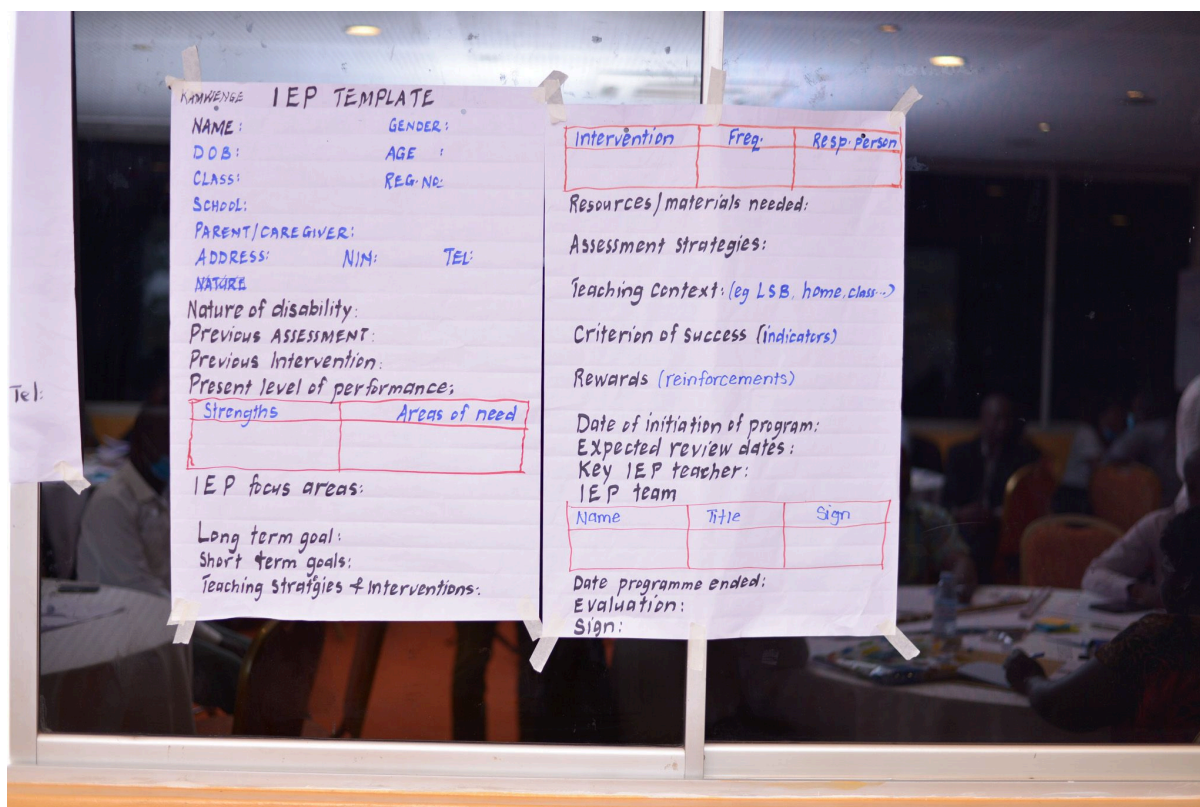 Tel:
KAMWENGE IEP TEMPLATE
NAME: GENDER:
DOB: AGE :
CLASS: REG.NO:
SCHOOL:
PARENT/CAREGIVER:
ADDRESS: NIN: TEL:
NATURE
Nature of disability:
Previous ASSESSMENT:
Previous Intervention:
Present level of performance;
Strengths Areas of need
IEP focus areas:
Long term goal:
Short term goals:
Teaching stratgies & Interventions:
Intervention Freq. Resp. person
Resources/materials needed:
Assessment strategies:
Teaching Context: (eg LSB, home, class...)
Criterion of success (indicators)
Rewards (reinforcements)
Date of initiation of program:
Expected review dates:
Key IEP teacher:
IEP team
Name Title Sign
Date programme ended:
Evaluation:
Sign: